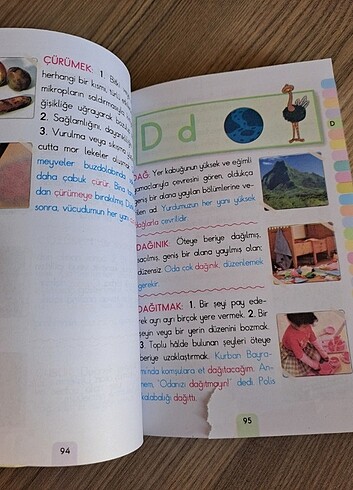 ÇÜRÜMEK: 1. Bitki
herhangi bir kısmı, türlü
mikropların saldırmasıyla
ğişikliğe uğrayarak
2. Sağlamlığını,
3. Vurulma veya sıkışma
cutta mor lekeler oluşmak
meyveler buzdolabında
daha çabuk çürür. Bina
dan çürümeye bırakılmış.
sonra, vücudumun her yanı
94
D d
D
DAĞ: Yer kabuğunun yüksek ve eğimli
yamaçlarıyla çevresini gören, oldukça
geniş bir alana yayılan bölümlerine ve-
len ad. Yurdumuzun her yanı yüksek
dağlarla çevrilidir.
DAĞINIK: Öteye beriye dağılmış,
saçılmış, geniş bir alana yayılmış olan;
düzensiz. Oda çok dağınık, düzenlemek
gerekir.
DAĞITMAK: 1. Bir şeyi pay ede-
rek ayrı ayrı birçok yere vermek. 2. Bir
şeyin veya bir yerin düzenini bozmak.
3. Toplu hâlde bulunan şeyleri öteye
beriye uzaklaştırmak. Kurban Bayra-
mında komşulara et dağıtacağım. An-
nem, "Odanızı dağıtmayın!" dedi. Polis
kalabalığı dağıttı.
95